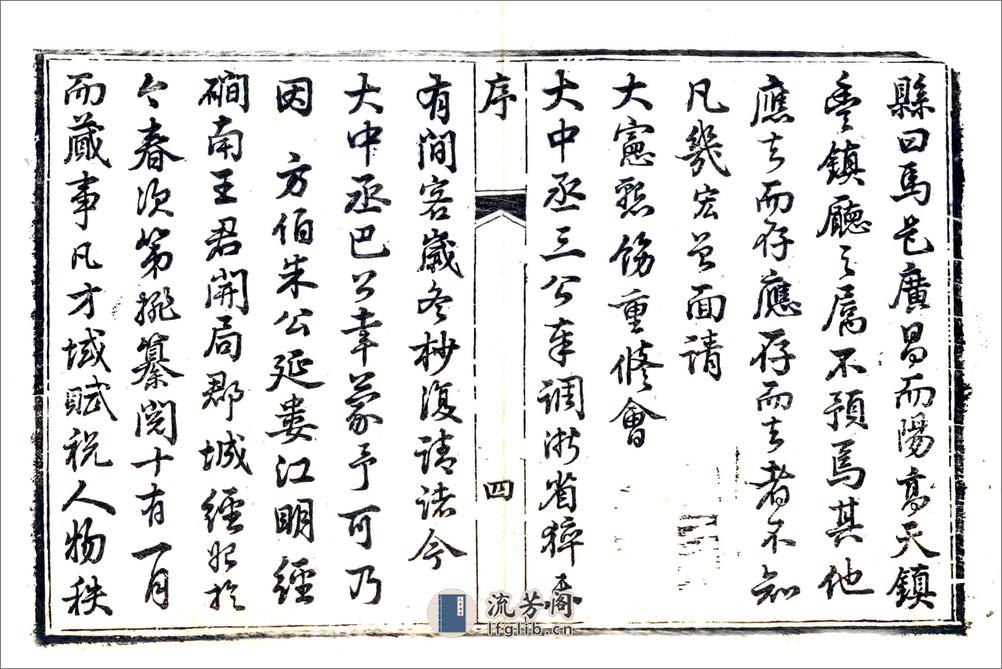 縣曰馬邑廣昌而陽髙天鎮
豊鎮廳之属不預焉其他
應去而存應存而去者不知
凡幾宏曾面請
大憲懇飭重修會
大中丞三公奉調浙省猝
序
四
有間客歲冬杪復請諸今
大中丞巴公幸蒙予可乃
因 方伯朱公延婁江明經
磵南王君開局郡城經始於
今春次第挑纂閲十有一月
而蕆事凡才域賦税人物秩
流芳阁
lfglib.cn